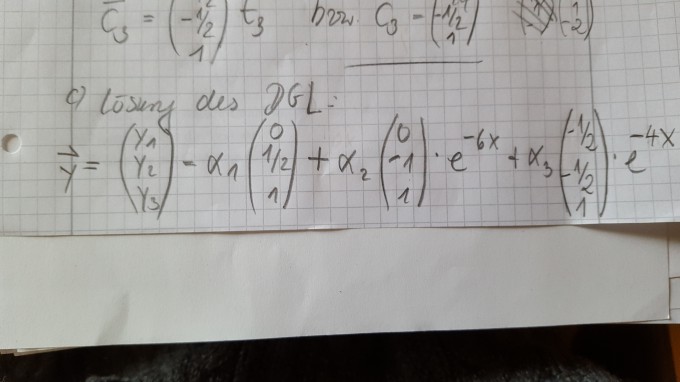 C₃ = (-1/2 1) t₃ bzw. C₃ = (-1/2 1) (1 -2)
c) Lösung des DGL:
y⃗ = (y₁ y₂ y₃) - α₁ (0 1/2 1) + α₂ (0 -1 1) · e^-6x + α₃ (-1/2 -1/2 1) · e^-4x